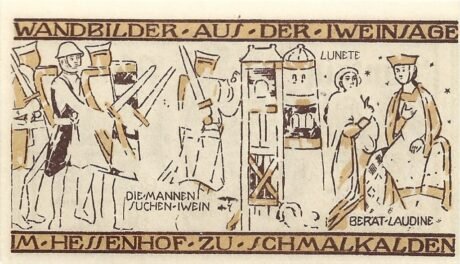 WANDBILDER · AUS · DER · IWEINSAGE
LUNETE
DIE·MANNEN
SUCHEN·IWEIN
BERÄT·LAUDINE·
IM·HESSENHOF·ZU·SCHMALKALDEN